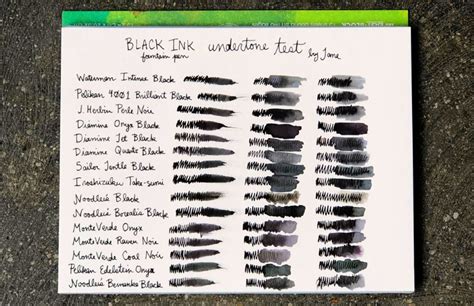 BLACK INK undertone test
fountain pen by Jane
Waterman Intense Black
Pelikan 4001 Brilliant Black
J. Herbin Perle Noir
Diamine Onyx Black
Diamine Jet Black
Diamine Quartz Black
Sailor Jentle Black
Iroshizuku Take-sumi
Noodler's Black
Noodler's Borealis Black
MonteVerde Onyx
MonteVerde Raven Noir
MonteVerde Coal Noir
Pelikan Edelstein Onyx
Noodler's Bernanke Black